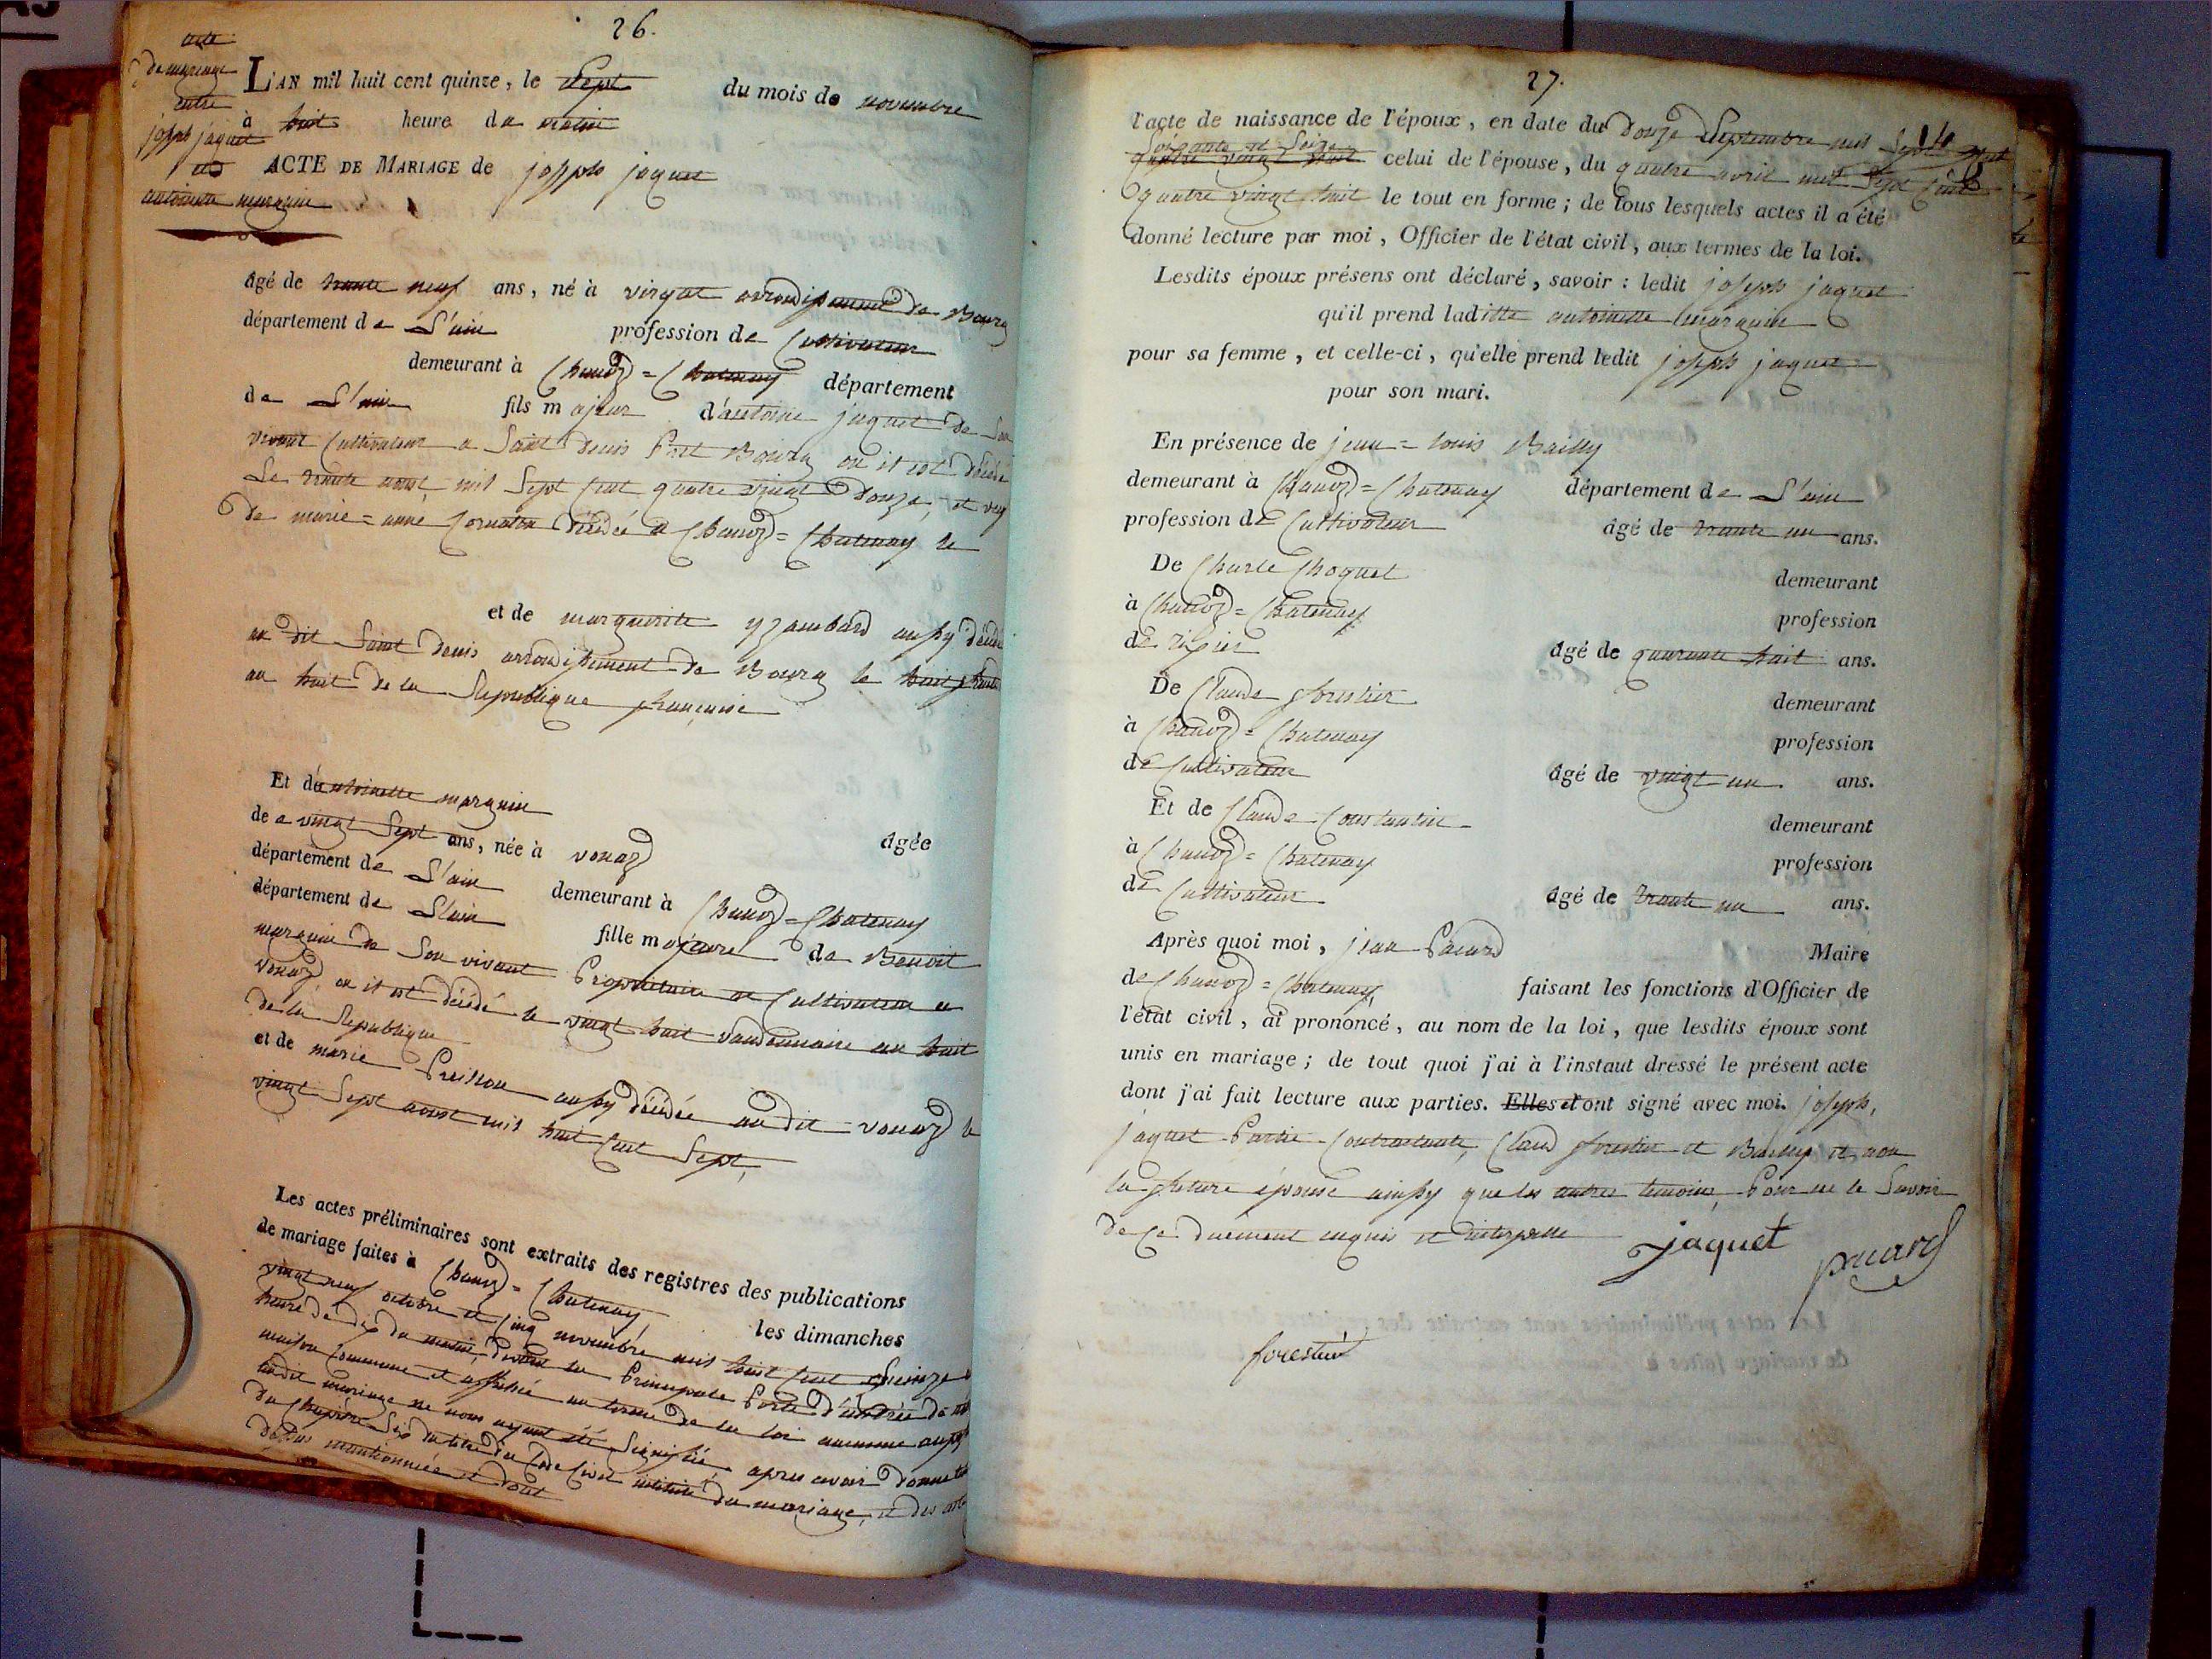 26.
acte
de mariage
entre
joseph jaquet
et
antoinette marguin
L'AN mil huit cent quinze, le Sept du mois de novembre
à huit heure du matin
ACTE DE MARIAGE de joseph jaquet
âgé de trante neuf ans, né à virgat arrondissement de Bourg
département de L'ain profession de Cultivateur
demeurant à Chanoz = Chatenay département
de L'ain fils majeur d'antoine jaquet de Son
vivant Cultivateur a Saint Denis Pret Bourg ou il est décédé
Le trante aoust mil Sept Cent quatre vingt Douze, et veuf
De marie = anne Cornaton Décédée a Chanoz = Chatenay le
et de marguerite yzambard aussy décédée
au dit Saint Denis arrondissement de Bourg le huit
an huit de la Republique française
Et d'antoinette marguin agée
de vingt Sept ans, née à vonaz
département de L'ain demeurant à Chanoz = Chatenay
département de L'ain fille majeure de Benoit
marguin de Son vivant Propriétaire et Cultivateur a
vonaz, ou il est décédé le vingt huit vandemiaire an huit
de la Republique
et de marie Preisson aussy décédée au dit vonaz le
vingt Sept aoust mil huit Cent Sept,
Les actes préliminaires sont extraits des registres des publications
de mariage faites à Chanoz = Chatenay, les dimanches
vingt neuf octobre et Cinq novembre mil huit Cent Quinze
heure de dix du matin, devant la Principale Porte d'entrée de
maison Commune et affiché au terme de la loi aucunne
audit mariage ne nous ayant été Signifiée, apres avoir donné
du Chapitre Six du titre du Code Civil intitulé du mariage, et des
dessus mantionnées et dont
27.
l'acte de naissance de l'époux, en date du Douze Septembre mil Sept Cent
Soixante et Seize
quatre vingt huit celui de l'épouse, du quatre avril mil Sept Cent
quatre vingt huit le tout en forme; de tous lesquels actes il a été
donné lecture par moi, Officier de l'état civil, aux termes de la loi.
Lesdits époux présens ont déclaré, savoir: ledit joseph jaquet
qu'il prend laditte antoinette marguin
pour sa femme, et celle-ci, qu'elle prend ledit joseph jaquet
pour son mari.
En présence de jean = louis Bailly
demeurant à Chanoz = Chatenay département de L'ain
profession de Cultivateur âgé de trante un ans.
De Charle Choquet demeurant
à Chanoz = Chatenay profession
de âgé de quarante huit ans.
De Claude forestier demeurant
à Chanoz = Chatenay profession
de Cultivateur âgé de vingt un ans.
Et de Claude Constantin demeurant
à Chanoz = Chatenay profession
de Cultivateur âgé de trante un ans.
Après quoi moi, jean Pacard Maire
de Chanoz = Chatenay, faisant les fonctions d'Officier de
l'état civil, ai prononcé, au nom de la loi, que lesdits époux sont
unis en mariage; de tout quoi j'ai à l'instant dressé le présent acte
dont j'ai fait lecture aux parties. Elles et ont signé avec moi. joseph,
jaquet Partie Contractante, Claud forestier et Bailly et non
la future épouse ainssy que les autres temoins, Pour ne le Savoir
de Ce duement requis et interpellé
jaquet
pacard
forestier